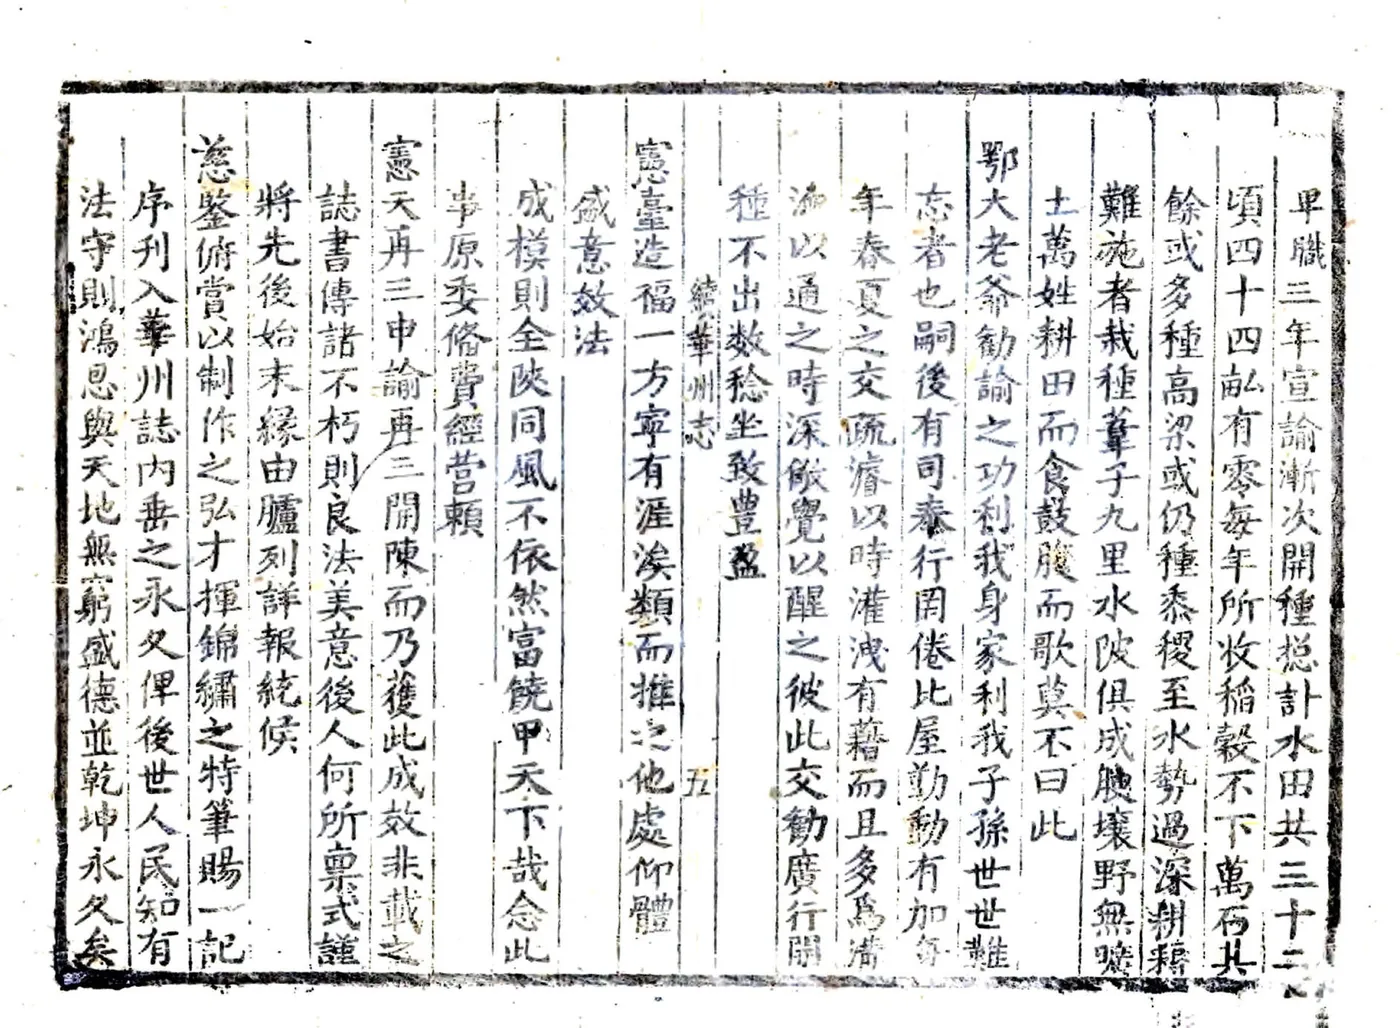 卑職三年宣諭漸次開種捴計水田共三十二
頃四十四畒有零每年所收稻穀不下萬石其
餘或多種高梁或仍種黍稷至水勢過深耕耨
難施者栽種葦子九里水陂俱成腴壤野無曠
土萬姓耕田而食鼓腹而歌莫不曰此
鄂大老爺勸諭之功利我身家利我子孫世世難
忘者也嗣後有司奉行罔倦比屋勤動有加每
年春夏之交疏濬以時灌洩有藉而且多為溝
洫以通之時深儆覺以醒之彼此交勸廣行開
種不出数稔坐致豊盈
續華州志 五
憲臺造福一方寧有涯涘類而推之他處仰體
盛意效法
成模則全陝同風不依然富饒甲天下哉念此
事原委俻費經營頼
憲天再三申諭再三開陳而乃獲此成效非載之
誌書傳諸不朽則良法美意後人何所禀式謹
將先後始末縁由臚列詳報統候
慈鑒俯賞以制作之弘才揮錦繡之特筆賜一記
序刊入華州誌内垂之永久俾後世人民知有
法守則鴻恩與天地無窮盛德並乾坤永久矣